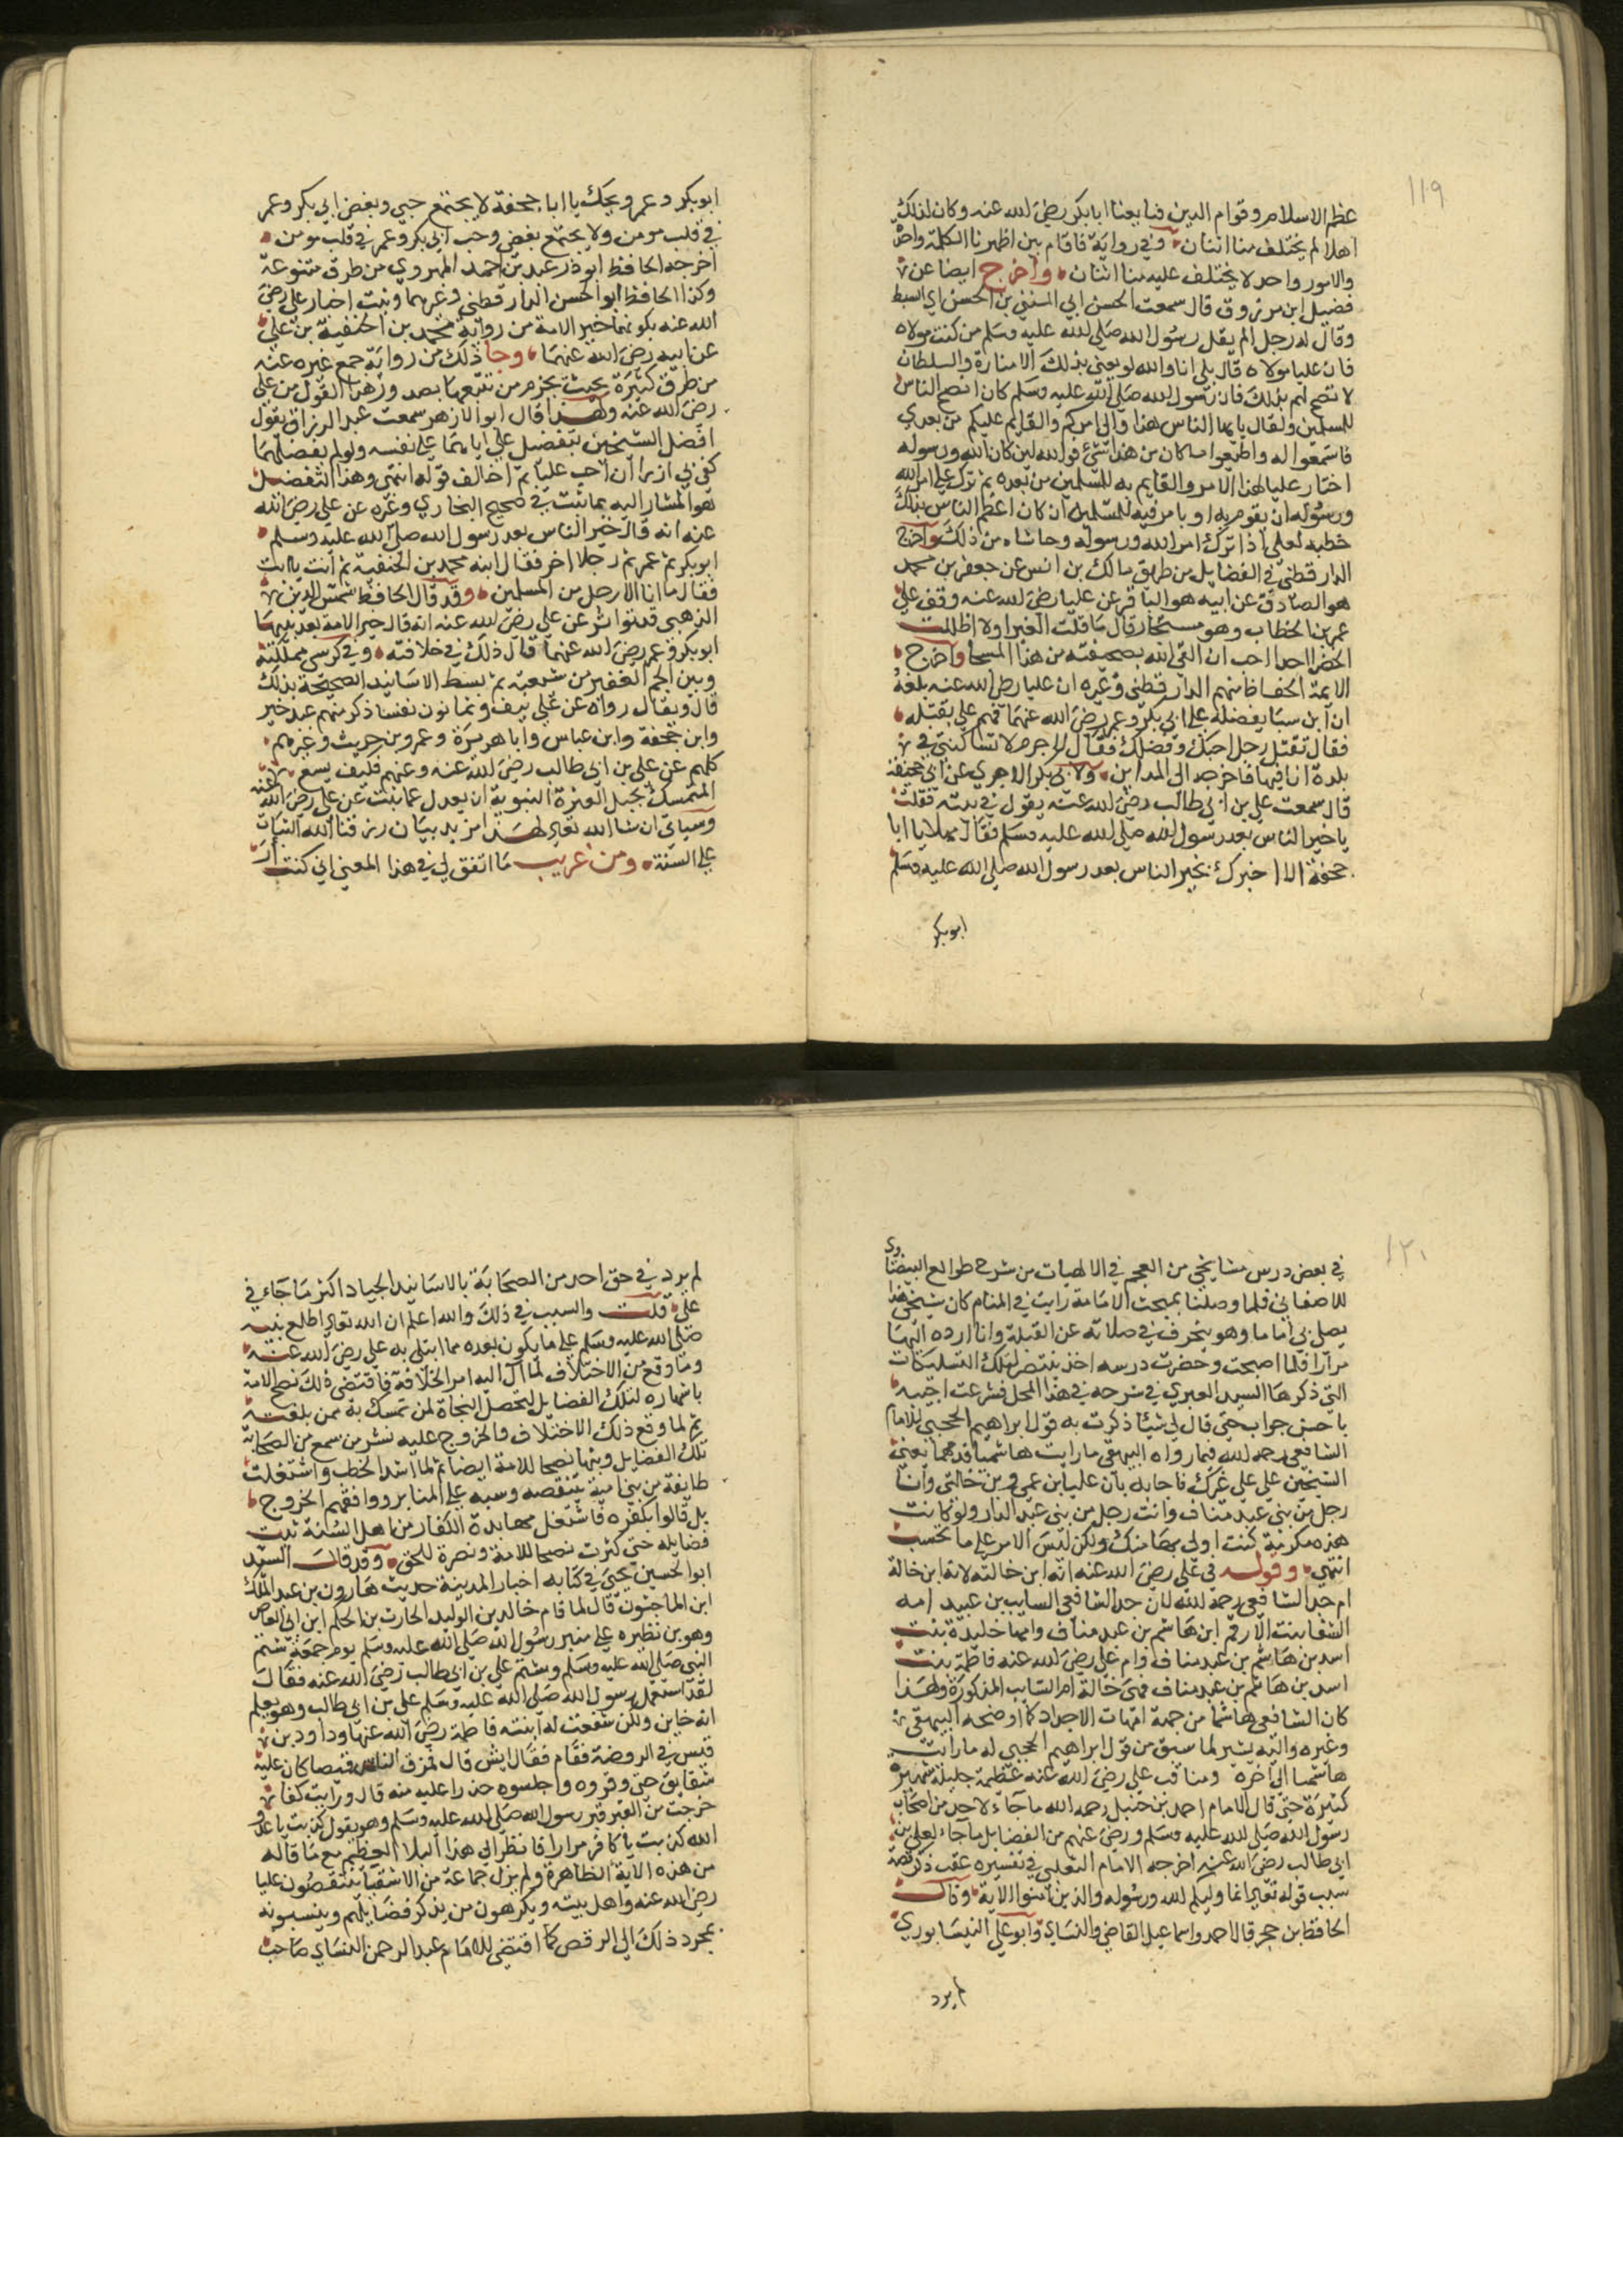 ١١٩
عظم الاسلام وقوام الدين فبايعنا ابا بكر رضي الله عنه وكان لذلك
اهلا لم يختلف منا اثنان وفي رواية فاقام بين اظهرنا الكلمة واحدة
والامور واحد لا يختلف عليه منا اثنان واخرج ايضا عن
فضيل ابن مرزوق قال سمعت الحسن ابي المثنى بن الحسن اي السبط
وقال له رجل الم يقل رسول الله صلى الله عليه وسلم من كنت مولاه
فان عليا مولاه قال بلى اما والله لو يعني بذلك الامارة والسلطان
لافصح لهم بذلك فان رسول الله صلى الله عليه وسلم كان انصح الناس
للمسلمين ولقال يايها الناس هذا والي امركم والقايم عليكم من بعدي
فاسمعوا له واطيعوا ما كان من هذا شيء فوالله لين كان الله ورسوله
اختار عليا لهذا الامر والقايم به للمسلمين من بعده ثم ترك علي امر الله
ورسوله ان يقوم به او يامر فيه للمسلمين ان كان اعظم الناس بذلك
خطيه لعلي اذا ترك امر الله ورسوله وحاشاه من ذلك واخرج
الدارقطني في الفضايل من طريق مالك بن انس عن جعفر بن محمد
هو الصادق عن ابيه هو الباقر عن عليا رضي الله عنه وقف علي
عمر بن الخطاب وهو مسجى وقال ما اقلت الغبرا ولا اظلمت
الخضرا احدا احب ان القى الله بصحيفته من هذا المسجا واخرج
الايمة الحفاظ منهم الدارقطني وغيره ان عليا رضي الله عنه بلغه
ان ابن سبا يفضله علي ابي بكر وعمر رضي الله عنهما فهم علي بقتله
فقال تقتل رجل احبك وفضلك فقال لا جرم لا تساكنني في
بلدة انا فيها فاخرجه الى المداين ولابي بكر الاجري عن ابي جحيفة
قال سمعت علي بن ابي طالب رضي الله عنه يقول في بيته فقلت
يا خير الناس بعد رسول الله صلى الله عليه وسلم فقال مهلا يا ابا
جحفة الا اخبرك بخير الناس بعد رسول الله صلى الله عليه وسلم
ابو بكر
ابو بكر وعمر ويحك يا ابا جحفة لا يجتمع حبي وبغض ابي بكر وعمر
في قلب مومن ولا يجتمع بغضي وحب ابي بكر وعمر في قلب مومن
اخرجه الحافظ ابو ذر عبد بن احمد الهروي من طرق متنوعة
وكذا الحافظ ابو الحسن الدارقطني وغيرهما وثبت اخبار علي رضي
الله عنه بكونهما خير الامة من رواية محمد بن الحنفية بن علي
عن ابيه رضي الله عنهما وجا ذلك من رواية جمع غيره عنه
من طرق كثيرة بحيث يجزم من تتبعها بصدور هذا القول من علي
رضي الله عنه ولهذا قال ابو الازهر سمعت عبد الرزاق يقول
افضل الشيخين بتفضيل علي اياهما على نفسه ولو لم يفضلهما
كفى بي ازرا ان احب عليا ثم اخالف قوله انتهى وهذا التفضيل
هو المشار اليه بما ثبت في صحيح البخاري وغيره عن علي رضي الله
عنه انه قال خير الناس بعد رسول الله صلى الله عليه وسلم
ابو بكر ثم عمر ثم رجلا اخر فقال ابنه محمد بن الحنفية ثم انت يا ابت
فقال ما انا الا رجل من المسلمين وقد قال الحافظ شمس الدين
الذهبي قد تواتر عن علي رضي الله عنه انه قال خير الامة بعد نبيها
ابو بكر وعمر رضي الله عنهما قال ذلك في خلافته وفي كرسي مملكته
وبين الجم الغفير من شيعته ثم بسط الاسانيد الصحيحة بذلك
قال ويقال رواه عن علي نيف وثمانون نفسا ذكر منهم عبد خير
وابن جحفة وابن عباس وابا هريرة وعمرو بن حريث وغيرهم
كلهم عن علي بن ابي طالب رضي الله عنه وعنهم فكيف يسع
المتمسك بحبل العترة النبوية ان يعدل عما ثبت عن علي رضي الله عنه
وسياتي ان شا الله تعالى لهذا مزيد بيان رزقنا الله الثبات
على السنة ومن غريب ما اتفق لي في هذا المعنى اني كنت
١٢٠
في بعض درس مشايخي من العجم في الالهيات من شرح طوالع البيضاوي
للاصفاني فلما وصلنا بمبحث الامامة رايت في المنام كان شيخي هذا
يصلي بي اماما وهو ينحرف في صلاته عن القبلة وانا ارده اليها
مرارا فلما اصبحت وحضرت درسه اخذ ينتصر لتلك التسليكات
التي ذكرها السيد العبري في شرحه في هذا المحل فشرعت اجيبه
باحسن جواب حتى قال لي شيئا ذكرت به قول ابراهيم الحجبي للامام
الشافعي رحمه الله فيما رواه البيهقي ما رايت هاشميا قدمهما يعني
الشيخين علي علي غيرك فاجابه بان عليا ابن عمي وبن خالتي وانا
رجل من بني عبد مناف وانت رجل من بني عبد الدار ولو كانت
هذه مكرمة كنت اولى بها منك ولكن ليس الامر على ما تحسب
انتهى وقوله في علي رضي الله عنه انه ابن خالته لانه ابن خالة
ام جد الشافعي رحمه الله لان جد الشافعي السايب بن عبيد امه
الشفا بنت الارقم ابن هاشم بن عبد مناف وامها خليدة بنت
اسد بن هاشم بن عبد مناف وام علي رضي الله عنه فاطمة بنت
اسد بن هاشم بن عبد مناف فهي خالة ام السايب المذكورة ولهذا
كان الشافعي هاشميا من جهة امهات الاجداد كما اوضحه البيهقي
وغيره واليه يشير لما سبق من قول ابراهيم الحجبي له ما رايت
هاشميا الى اخره ومناقب علي رضي الله عنه عظيمة جليلة شهيرة
كثيرة حتى قال الامام احمد بن حنبل رحمه الله ما جاء لاحد من اصحاب
رسول الله صلى الله عليه وسلم ورضي عنهم من الفضايل ما جاء لعلي بن
ابي طالب رضي الله عنه اخرجه الامام الثعلبي في تفسيره عقب ذكر قصة
سبب قوله تعالى انما وليكم لله ورسوله والذين امنوا الاية وقال
الحافظ بن حجر قال احمد واسماعيل القاضي والنساي وابو علي النيسابوري
لم يرد
لم يرد في حق احد من الصحابة بالاسانيد الجياد اكثر مما جاء في
علي قلت والسبب في ذلك والله اعلم ان الله تعالى اطلع نبيه
صلى الله عليه وسلم على ما يكون بعده مما ابتلي به علي رضي الله عنه
وما وقع من الاختلاف لما آل اليه امر الخلافة فاقتضى ذلك نصح الامة
باشهاره لتلك الفضايل لتحصل النجاة لمن تمسك به ممن بلغته
ثم لما وقع ذلك الاختلاف والخروج عليه نشر من سمع من الصحابة
تلك الفضايل وبثها نصحا للامة ايضا ثم لما اشتد الخطب واشتغلت
طايفة من بني امية بتنقصه وسبه على المنابر ووافقهم الخروج
بل قالوا بكفره فاشتغل جهابذة الكفار من اهل السنة ببث
فضايله حتى كثرت نصحا للامة ونصرة للحق وقد قال السيد
ابو الحسين يحيى في كتابه اخبار المدينة حديث هارون بن عبد الملك
ابن الماجشون قال لما قام خالد بن الوليد الحارث بن الحكم ابن ابي العاص
وهو بن نظيره على منبر رسول الله صلى الله عليه وسلم يوم جمعة شتم
النبي صلى الله عليه وسلم وشتم علي بن ابي طالب رضي الله عنه فقال
لقد استعمل رسول الله صلى الله عليه وسلم علي بن ابي طالب وهو يعلم
انه خاين ولكن شفعت له ابنته فاطمة رضي الله عنها وداود بن
قيس في الروضة فقام فقال ايش قال فمزق الناس قميصا كان عليه
شقايق حتى وقروه واجلسوه حذرا عليه منه قال ورايت كفا
خرجت من القبر قبر رسول الله صلى الله عليه وسلم وهو يقول كذبت يا عدو
الله كذبت يا كافر مرارا فانظر الى هذا البلا العظيم مع ما قاله
من هذه الاية الظاهرة ولم يزل جماعة من الاشقيا ينتقصون عليا
رضي الله عنه واهل بيته ويكرهون من يذكر فضايلهم وينسبونه
بمجرد ذلك الى الرفض كما اقتضى للامام عبد الرحمن النساي صاحب